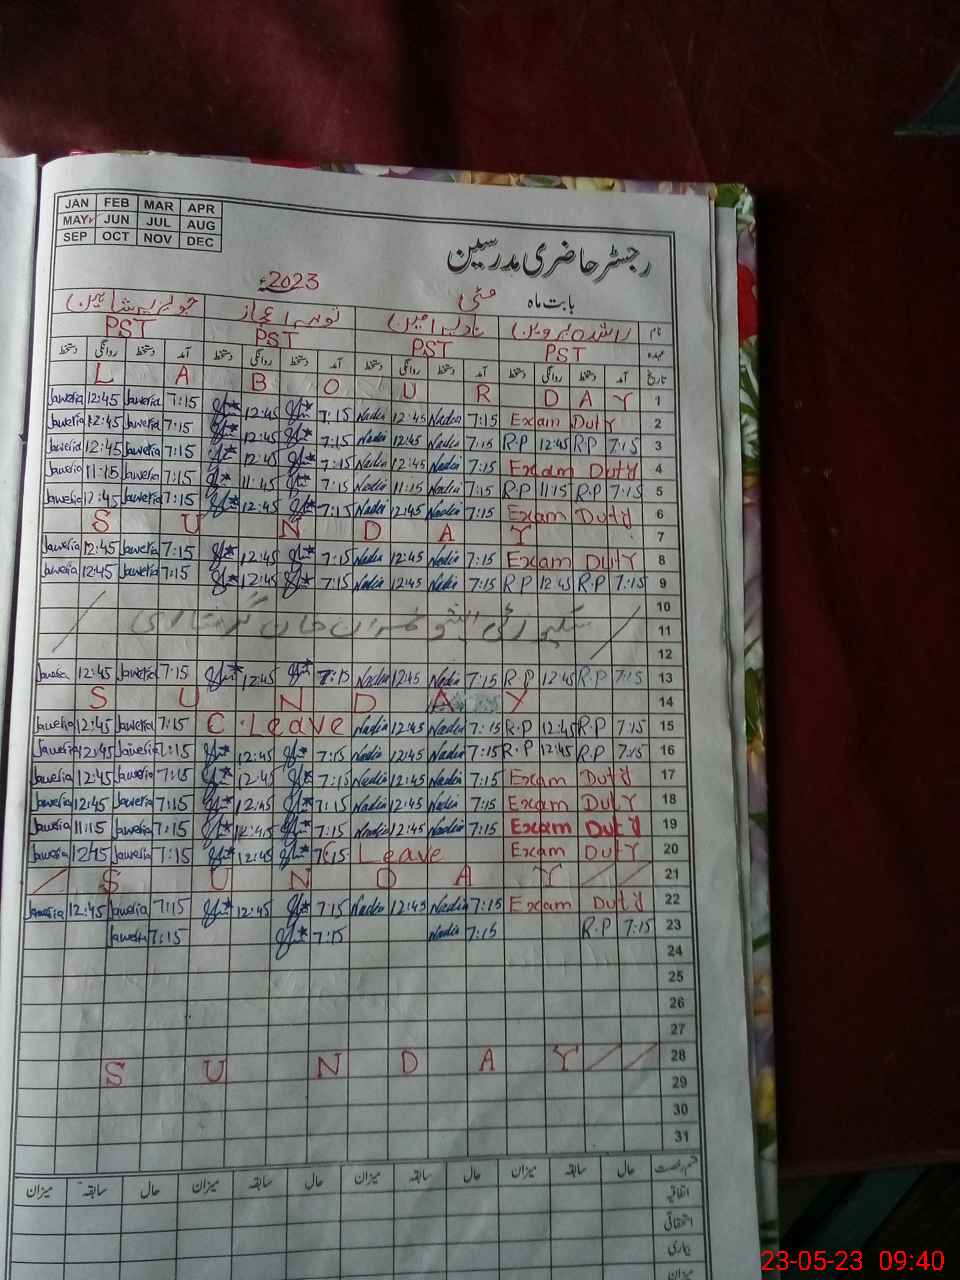 JAN FEB MAR APR
MAY JUN JUL AUG
SEP OCT NOV DEC
رجسٹر حاضری مدرسین
2023ء
بابت ماہ مئی
نام راشدہ پروین نادیہ امین
عہدہ PST PST PST PST
تاریخ آمد دستخط روانگی دستخط آمد دستخط روانگی دستخط آمد دستخط روانگی دستخط آمد دستخط روانگی دستخط
L A B O U R D A Y 1
Jaweria 12:45 Jaweria 7:15 12:45 7:15 Nadia 12:45 Nadia 7:15 Exam Duty 2
Jaweria 12:45 Jaweria 7:15 12:45 7:15 Nadia 12:45 Nadia 7:15 R.P 12:45 R.P 7:15 3
Jaweria 12:45 Jaweria 7:15 12:45 7:15 Nadia 12:45 Nadia 7:15 Exam Duty 4
Jaweria 11:15 Jaweria 7:15 11:45 7:15 Nadia 11:15 Nadia 7:15 R.P 11:15 R.P 7:15 5
Jaweria 12:45 Jaweria 7:15 12:45 7:15 Nadia 12:45 Nadia 7:15 Exam Duty 6
S U N D A Y 7
Jaweria 12:45 Jaweria 7:15 12:45 7:15 Nadia 12:45 Nadia 7:15 Exam Duty 8
Jaweria 12:45 Jaweria 7:15 12:45 7:15 Nadia 12:45 Nadia 7:15 R.P 12:45 R.P 7:15 9
10
عمران خان گرفتاری 11
12
Jaweria 12:45 Jaweria 7:15 12:45 7:15 Nadia 12:45 Nadia 7:15 R.P 12:45 R.P 7:15 13
S U N D A Y 14
Jaweria 12:45 Jaweria 7:15 C.Leave Nadia 12:45 Nadia 7:15 R.P 12:45 R.P 7:15 15
Jaweria 12:45 Jaweria 7:15 12:45 7:15 Nadia 12:45 Nadia 7:15 R.P 12:45 R.P 7:15 16
Jaweria 12:45 Jaweria 7:15 12:45 7:15 Nadia 12:45 Nadia 7:15 Exam Duty 17
Jaweria 12:45 Jaweria 7:15 12:45 7:15 Nadia 12:45 Nadia 7:15 Exam Duty 18
Jaweria 11:15 Jaweria 7:15 7:15 Nadia 12:45 Nadia 7:15 Exam Duty 19
Jaweria 12:15 Jaweria 7:15 12:45 7:15 Leave Exam Duty 20
S U N D A Y 21
Jaweria 12:45 Jaweria 7:15 12:45 7:15 Nadia 12:45 Nadia 7:15 Exam Duty 22
Jaweria 7:15 7:15 Nadia 7:15 R.P 7:15 23
24
25
26
27
S U N D A Y 28
29
30
31
قسم رخصت حال سابقہ میزان حال سابقہ میزان حال سابقہ میزان حال سابقہ میزان
اتفاقیہ
استحقاقی
بیماری
میزان
23-05-23 09:40